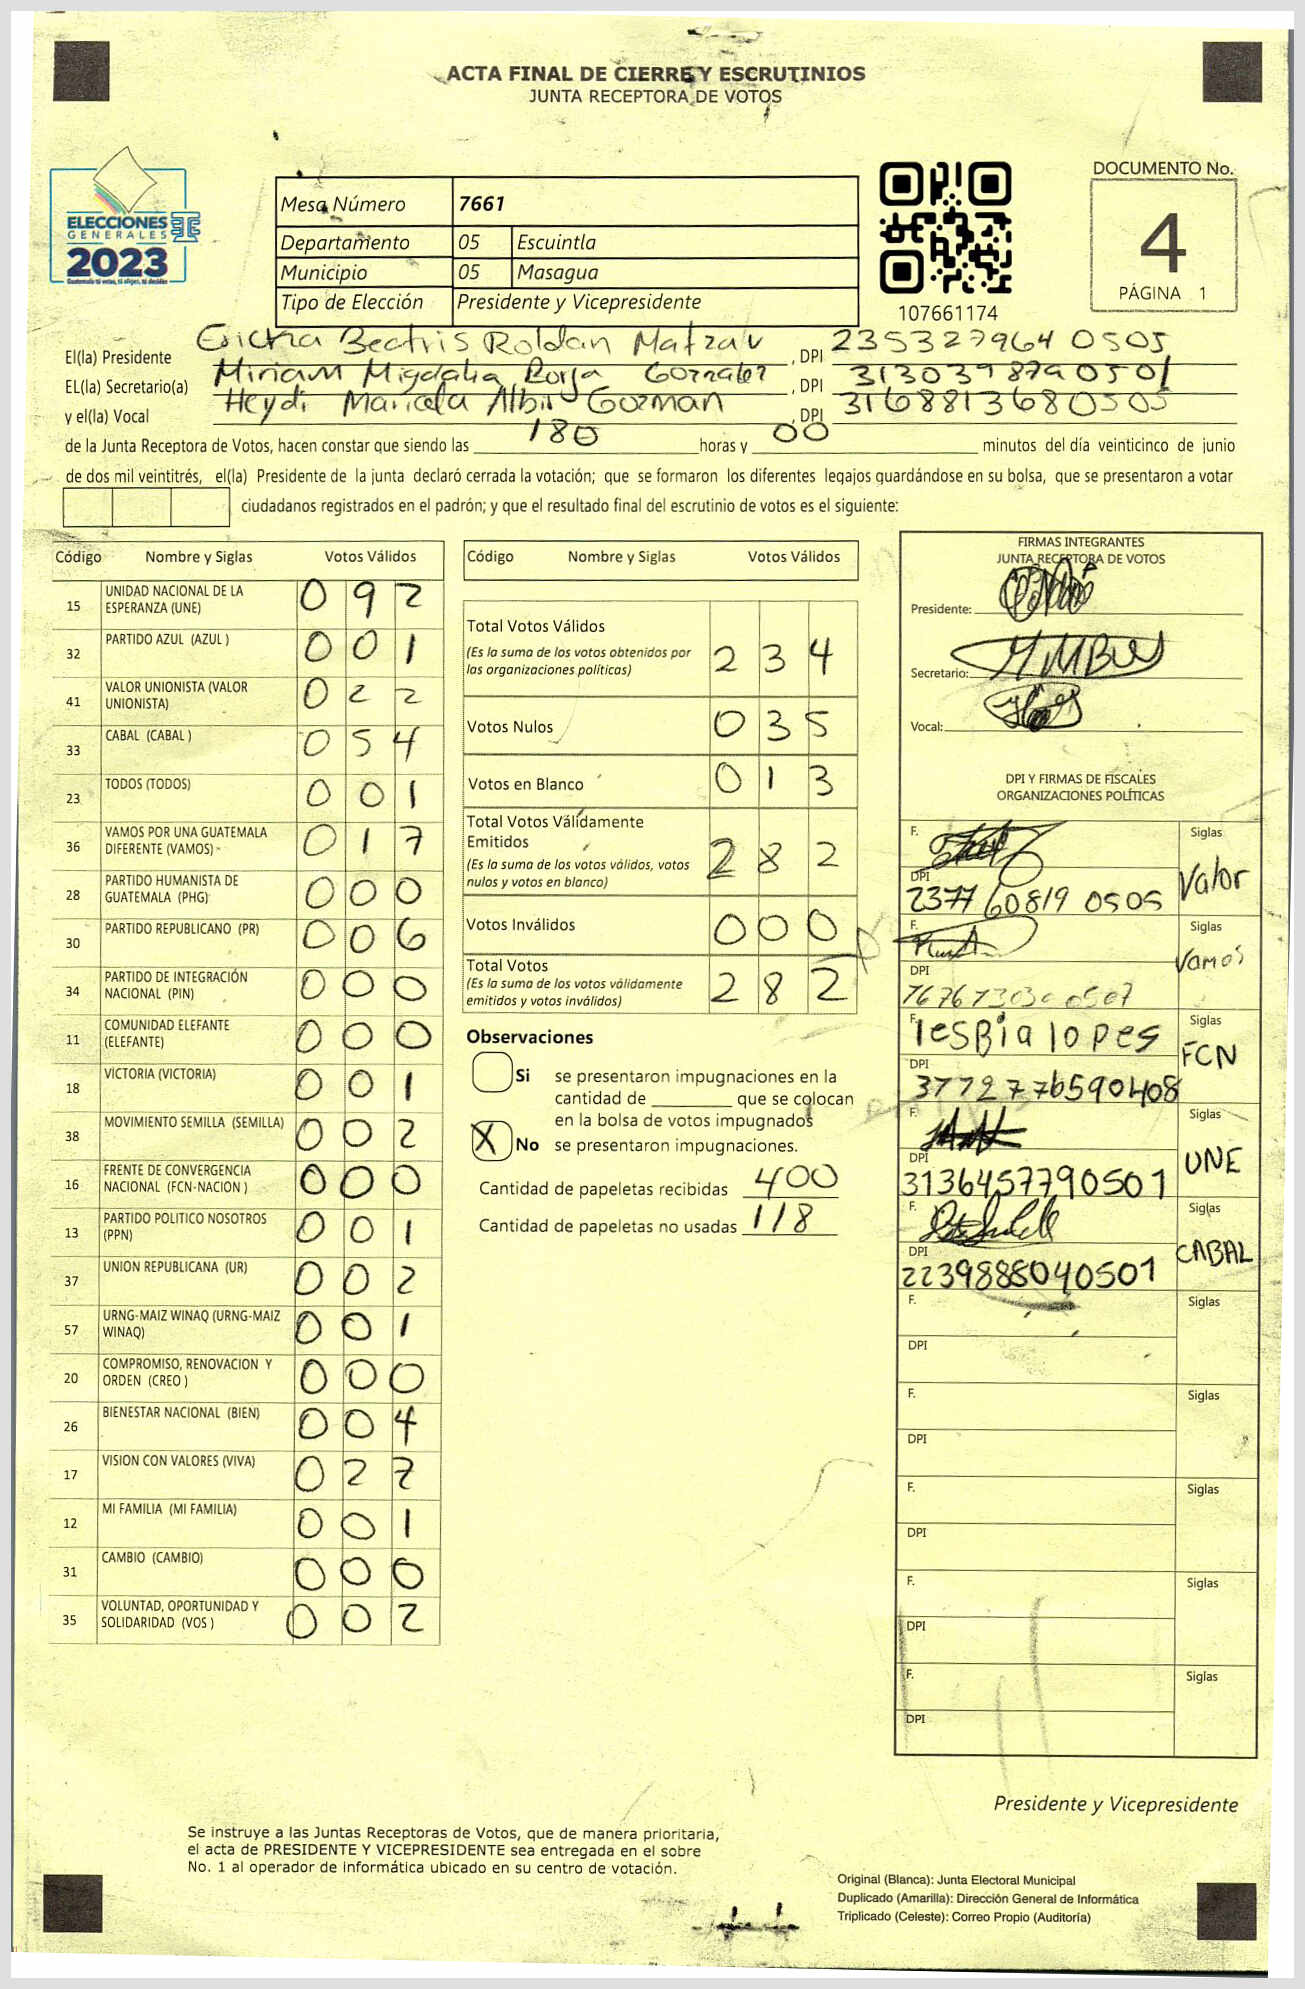 ACTA FINAL DE CIERRE Y ESCRUTINIOS
JUNTA RECEPTORA DE VOTOS
ELECCIONES
GENERALES
2023
Guatemala tú votas, tú eliges, tú decides
Mesa Número 7661
Departamento 05 Escuintla
Municipio 05 Masagua
Tipo de Elección Presidente y Vicepresidente
107661174
DOCUMENTO No.
4
PÁGINA 1
El(la) Presidente Ericka Beatris Roldan Matzav , DPI 235327964 0505
EL(la) Secretario(a) Miriam Migdalia Borja Gonzalez , DPI 313039879 0501
y el(la) Vocal Heydi Maricela Albir Guzman , DPI 316881368 0505
de la Junta Receptora de Votos, hacen constar que siendo las 180 horas y 00 minutos del día veinticinco de junio
de dos mil veintitrés, el(la) Presidente de la junta declaró cerrada la votación; que se formaron los diferentes legajos guardándose en su bolsa, que se presentaron a votar
ciudadanos registrados en el padrón; y que el resultado final del escrutinio de votos es el siguiente:
Código Nombre y Siglas Votos Válidos
15 UNIDAD NACIONAL DE LA ESPERANZA (UNE) 0 9 2
32 PARTIDO AZUL (AZUL ) 0 0 1
41 VALOR UNIONISTA (VALOR UNIONISTA) 0 2 2
33 CABAL (CABAL ) 0 5 4
23 TODOS (TODOS) 0 0 1
36 VAMOS POR UNA GUATEMALA DIFERENTE (VAMOS) 0 1 7
28 PARTIDO HUMANISTA DE GUATEMALA (PHG) 0 0 0
30 PARTIDO REPUBLICANO (PR) 0 0 6
34 PARTIDO DE INTEGRACIÓN NACIONAL (PIN) 0 0 0
11 COMUNIDAD ELEFANTE (ELEFANTE) 0 0 0
18 VICTORIA (VICTORIA) 0 0 1
38 MOVIMIENTO SEMILLA (SEMILLA) 0 0 2
16 FRENTE DE CONVERGENCIA NACIONAL (FCN-NACION ) 0 0 0
13 PARTIDO POLITICO NOSOTROS (PPN) 0 0 1
37 UNION REPUBLICANA (UR) 0 0 2
57 URNG-MAIZ WINAQ (URNG-MAIZ WINAQ) 0 0 1
20 COMPROMISO, RENOVACION Y ORDEN (CREO ) 0 0 0
26 BIENESTAR NACIONAL (BIEN) 0 0 4
17 VISION CON VALORES (VIVA) 0 2 7
12 MI FAMILIA (MI FAMILIA) 0 0 1
31 CAMBIO (CAMBIO) 0 0 0
35 VOLUNTAD, OPORTUNIDAD Y SOLIDARIDAD (VOS ) 0 0 2
Código Nombre y Siglas Votos Válidos
Total Votos Válidos
(Es la suma de los votos obtenidos por
las organizaciones políticas) 2 3 4
Votos Nulos 0 3 5
Votos en Blanco 0 1 3
Total Votos Válidamente
Emitidos
(Es la suma de los votos válidos, votos
nulos y votos en blanco) 2 8 2
Votos Inválidos 0 0 0
Total Votos
(Es la suma de los votos válidamente
emitidos y votos inválidos) 2 8 2
Observaciones
Si se presentaron impugnaciones en la
cantidad de ________ que se colocan
en la bolsa de votos impugnados
X No se presentaron impugnaciones.
Cantidad de papeletas recibidas 400
Cantidad de papeletas no usadas 118
FIRMAS INTEGRANTES
JUNTA RECEPTORA DE VOTOS
Presidente:
Secretario:
Vocal:
DPI Y FIRMAS DE FISCALES
ORGANIZACIONES POLÍTICAS
F. Siglas
Valor
DPI
2377 60819 0505
F. Siglas
Vamos
DPI
F. lesbia lopes Siglas
FCN
DPI
3772776590408
F. Siglas
UNE
DPI
3136457790501
F. Siglas
CABAL
DPI
2239888040501
F. Siglas
DPI
F. Siglas
DPI
F. Siglas
DPI
F. Siglas
DPI
F. Siglas
DPI
Presidente y Vicepresidente
Se instruye a las Juntas Receptoras de Votos, que de manera prioritaria,
el acta de PRESIDENTE Y VICEPRESIDENTE sea entregada en el sobre
No. 1 al operador de informática ubicado en su centro de votación.
Original (Blanca): Junta Electoral Municipal
Duplicado (Amarilla): Dirección General de Informática
Triplicado (Celeste): Correo Propio (Auditoría)